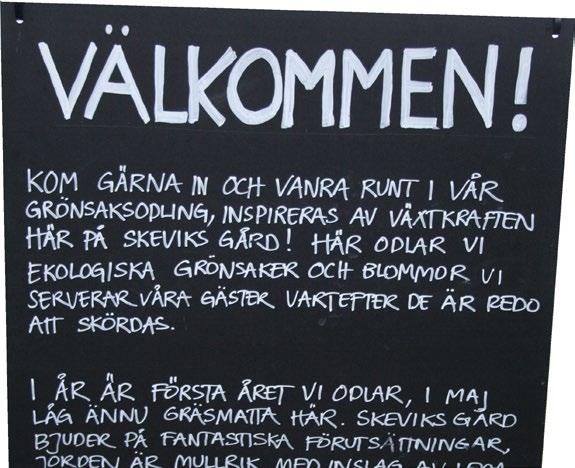 VÄLKOMMEN!
KOM GÄRNA IN OCH VANRA RUNT I VÅR
GRÖNSAKSODLING, INSPIRERAS AV VÄXTKRAFTEN
HÄR PÅ SKEVIKS GÅRD! HÄR ODLAR VI
EKOLOGISKA GRÖNSAKER OCH BLOMMOR VI
SERVERAR VÅRA GÄSTER VARTEFTER DE ÄR REDO
ATT SKÖRDAS.
I ÅR ÄR FÖRSTA ÅRET VI ODLAR, I MAJ
LÅG ÄNNU GRÄSMATTA HÄR. SKEVIKS GÅRD
BJUDER PÅ FANTASTISKA FÖRUTSÄTTNINGAR,
JORDEN ÄR MULLRIK MED INSLAG AV